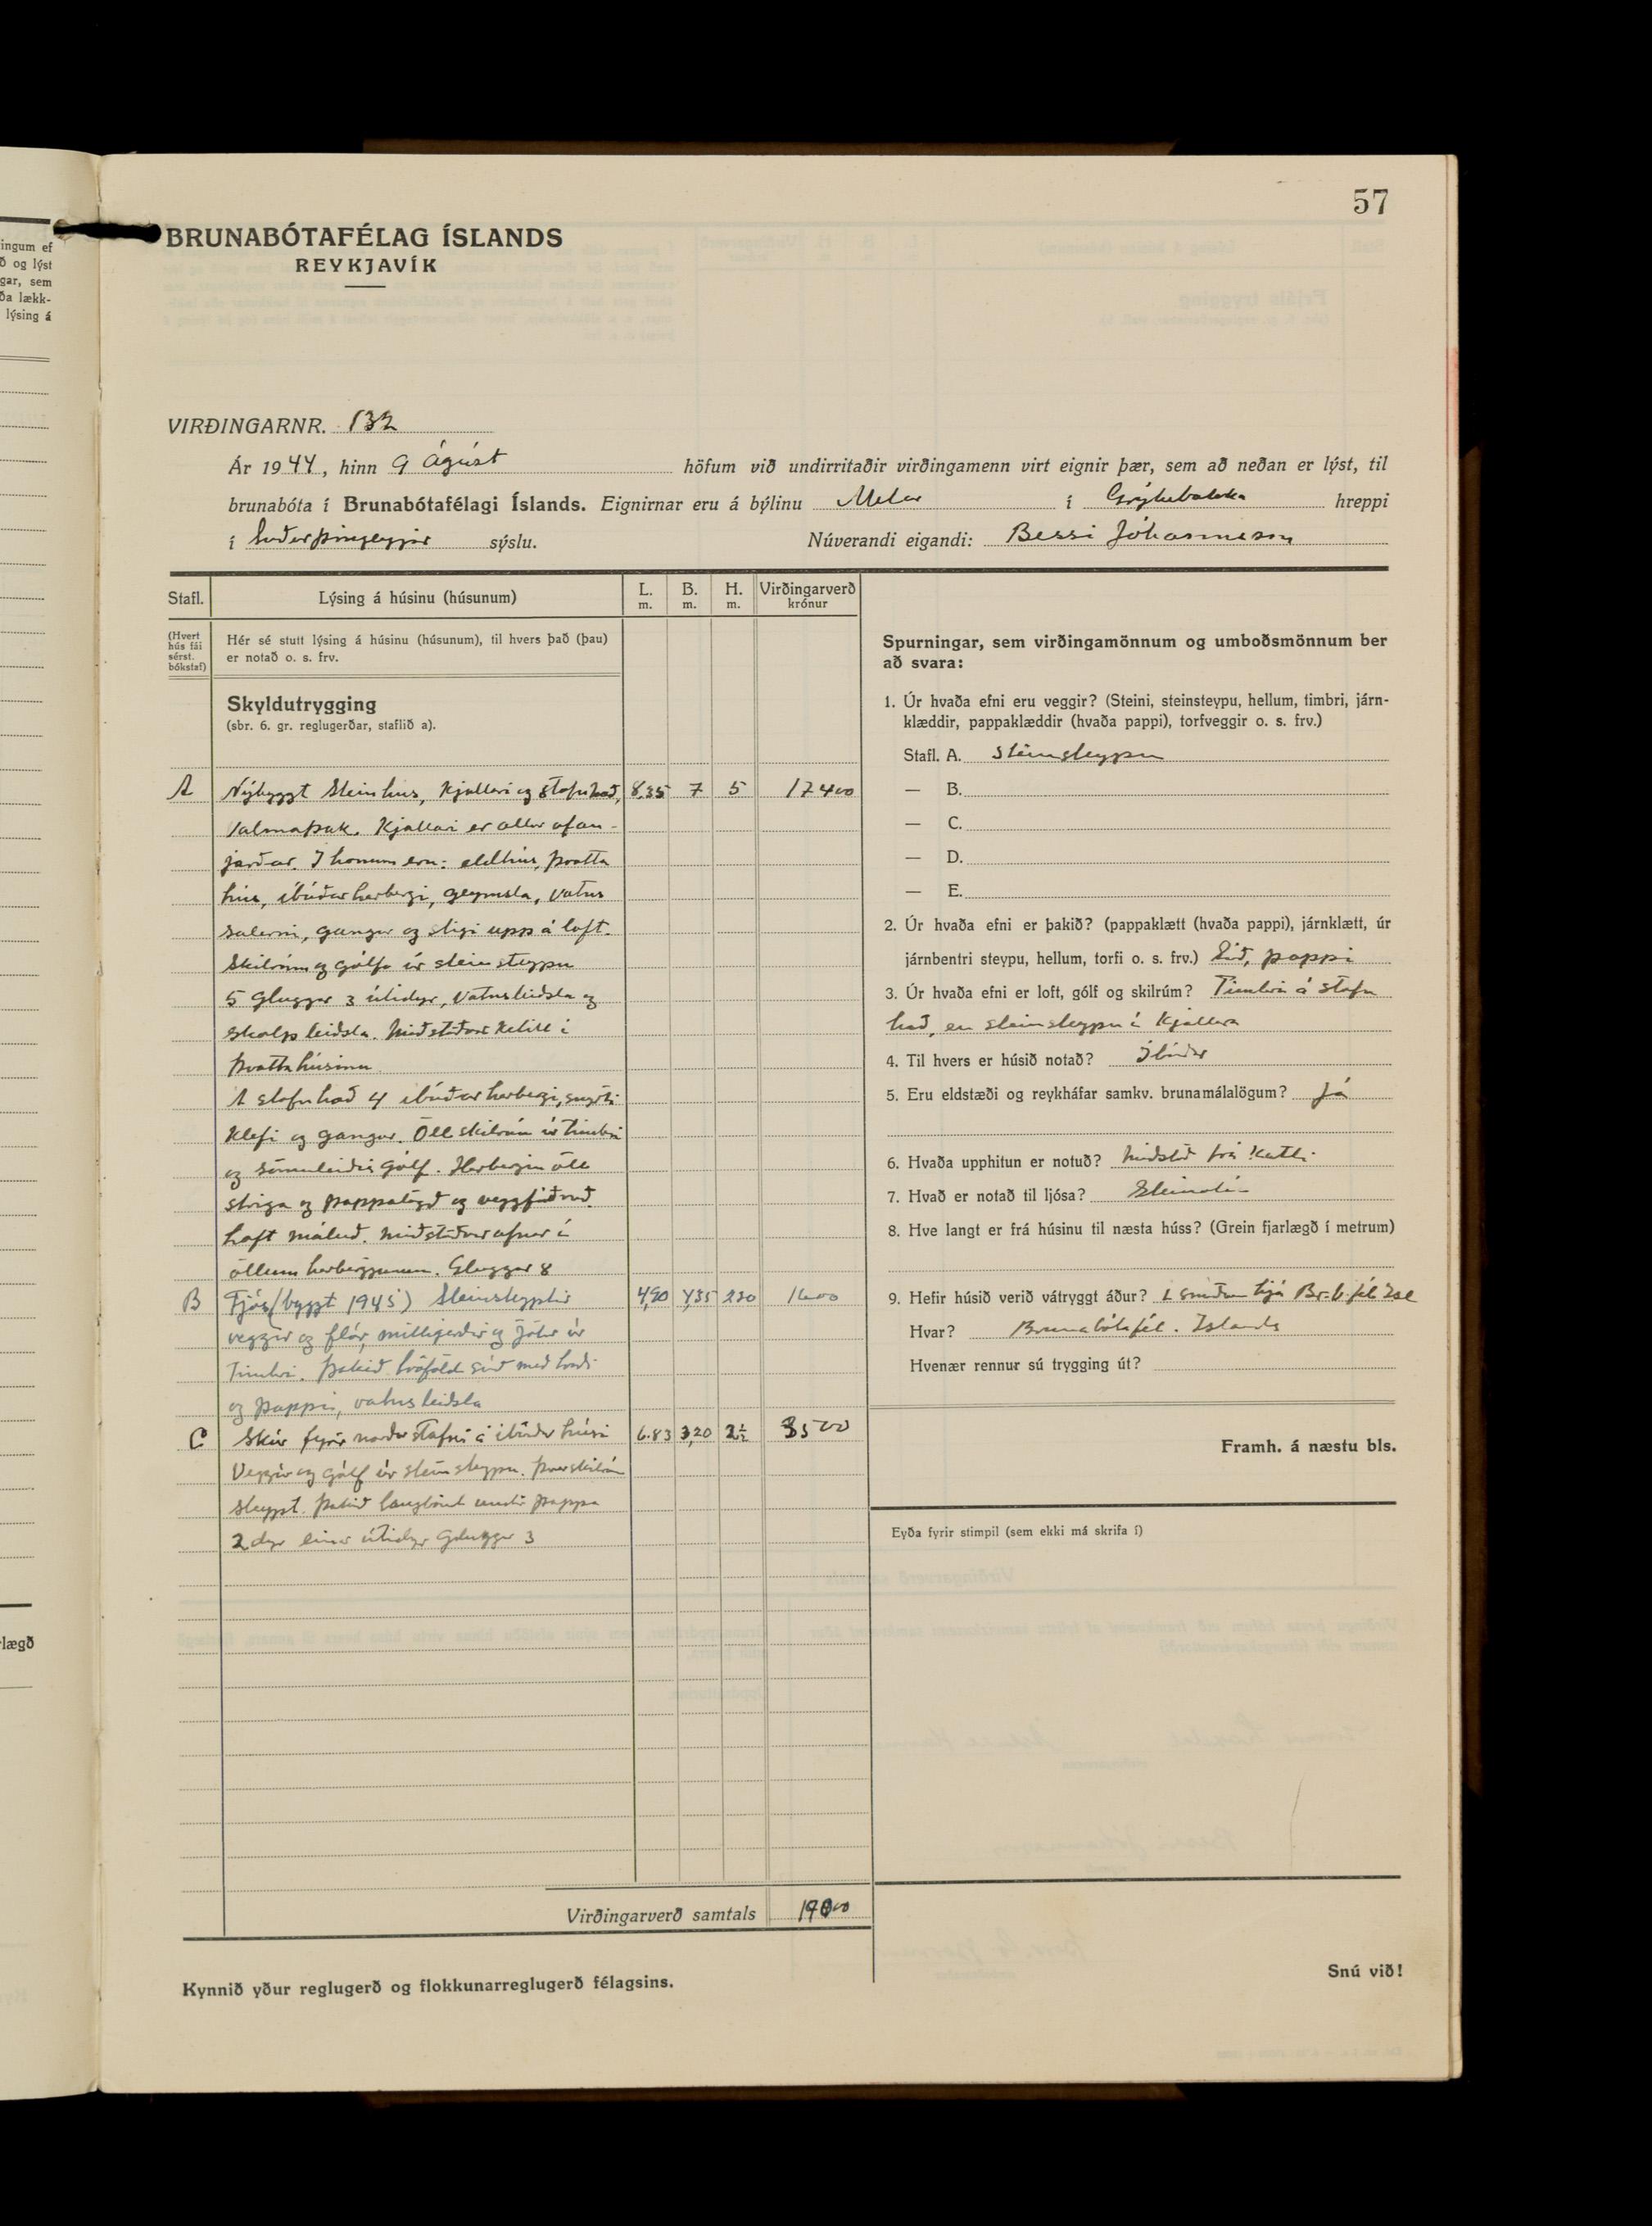 57
BRUNABÓTAFÉLAG ÍSLANDS
REYKJAVÍK
VIRÐINGARNR. 132
Ár 1944, hinn 9 Ágúst höfum við undirritaðir virðingamenn virt eignir þær, sem að neðan er lýst, til
brunabóta í Brunabótafélagi Íslands. Eignirnar eru á býlinu Melar í Grýtubakka hreppi
í Suðurþingeyjar sýslu. Núverandi eigandi: Bessi Jóhannesson
Stafl. Lýsing á húsinu (húsunum) L. m. B. m. H. m. Virðingarverð krónur
(Hvert hús fái sérst. bókstaf)
Hér sé stutt lýsing á húsinu (húsunum), til hvers það (þau)
er notað o. s. frv.
Skyldutrygging
(sbr. 6. gr. reglugerðar, staflið a).
A Nýbyggt Steinhús, Kjallari og stofuhæð, 8,35 7 5 17400
Valmaþak. Kjallari er allur ofan-
jarðar. Í honum eru: eldhús, þvotta
hús, íbúðarherbergi, geymsla, vatns
salerni, gangur og stigi upp á loft.
Skilrúm og gólf úr steinsteypu
5 Gluggar 3 útidyr, Vatnsleiðsla og
skolpleiðsla. Miðstöðvar Ketill í
þvottahúsinu
Á stofuhæð 4 íbúðarherbergi, snyrti
klefi og gangur. Öll skilrúm úr timbri
og sömuleiðis gólf. Herbergin öll
striga og pappalögð og veggfóðruð.
Loft máluð. Miðstöðvarofnar í
öllum herbergjunum. Gluggar 8
B Fjós (byggt 1945) Steinsteyptir 4,90 4,35 220 1600
veggir og flór, milligerðir og jötur úr
Timbri. Þakið tvöföld súð með
og pappi, vatnsleiðsla
C Skúr fyrir norður stafni á íbúðar húsi 6.83 3,20 2½ 3500
Veggir og gólf úr steinsteypu. Þverskilrúm
steypt. Þakið undir pappa
2 dyr einar útidyr Gluggar 3
Virðingarverð samtals
Kynnið yður reglugerð og flokkunarreglugerð félagsins.
Spurningar, sem virðingamönnum og umboðsmönnum ber
að svara:
1. Úr hvaða efni eru veggir? (Steini, steinsteypu, hellum, timbri, járn-
klæddir, pappaklæddir (hvaða pappi), torfveggir o. s. frv.)
Stafl. A. Steinsteypu
— B.
— C.
— D.
— E.
2. Úr hvaða efni er þakið? (pappaklætt (hvaða pappi), járnklætt, úr
járnbentri steypu, hellum, torfi o. s. frv.) Súð, pappi
3. Úr hvaða efni er loft, gólf og skilrúm? Timbri á stofu
hæð, en steinsteypu í Kjallara
4. Til hvers er húsið notað? Íbúðar
5. Eru eldstæði og reykháfar samkv. brunamálalögum? Já
6. Hvaða upphitun er notuð? Miðstöð frá Katli
7. Hvað er notað til ljósa? Steinolía
8. Hve langt er frá húsinu til næsta húss? (Grein fjarlægð í metrum)
9. Hefir húsið verið vátryggt áður? Í smíðum hjá Br.b.fél Ísl
Hvar? Brunabótafél. Íslands
Hvenær rennur sú trygging út?
Framh. á næstu bls.
Eyða fyrir stimpil (sem ekki má skrifa í)
Snú við!
ingum ef
ð og lýst
gar, sem
ða lækk-
lýsing á
lægð